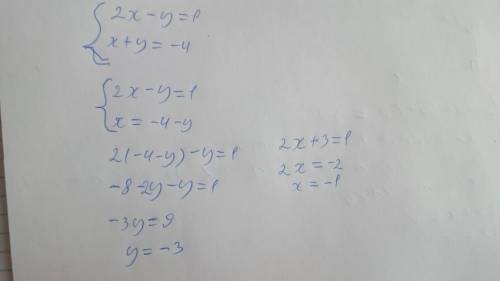 2x-y=1
x+y=-4
2x-y=1
x=-4-y
2(-4-y)-y=1
-8-2y-y=1
-3y=9
y=-3
2x+3=1
2x=-2
x=-1